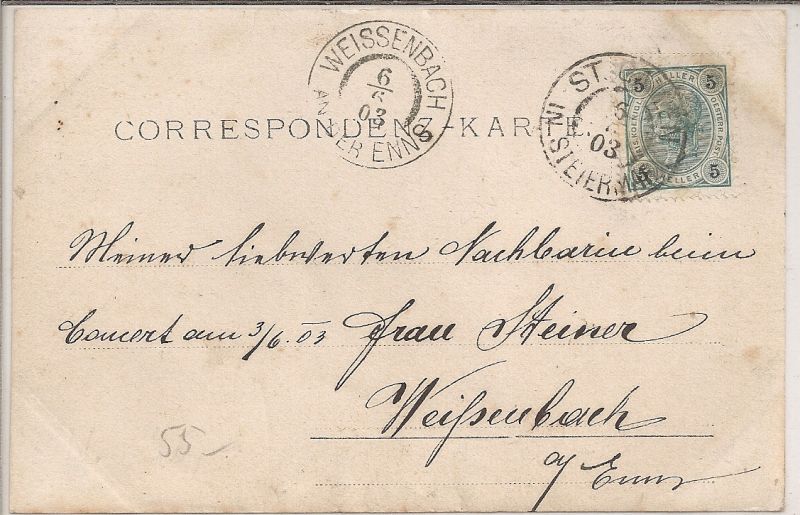 WEISSENBACH
AN DER ENNS
6
03
ST.
IN STEIERMARK
6
03
5 HELLER 5
OESTERR. POST
5 HELLER 5
CORRESPONDENZ-KARTE.
Meiner liebwerten Nachbarin beim
Concert am 3/6. 03 Frau Steiner
Weißenbach
a/ Enns
55